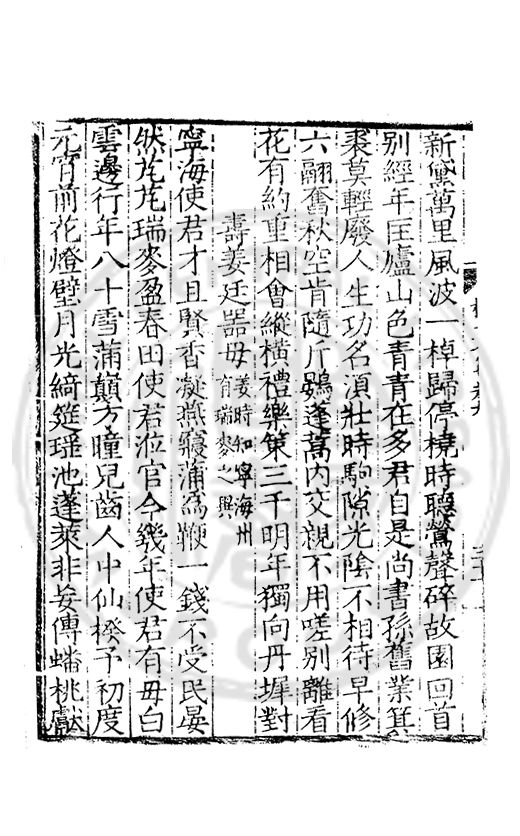 新黛萬里風波一棹歸停橈時聽鶯聲碎故園回首
别經年匡廬山色青青在多君自是尚書孫舊業箕
裘莫輕廢人生功名湏壮時駒隙光陰不相待早修
六翮奮秋空肯隨斥鷃蓬蒿内交親不用嗟别離看
花有約重相會縱横禮樂策三千明年獨向丹墀對
壽姜廷器母姜時知寧海州有瑞麥之異
寧海使君才且賢香凝燕寢蒲為鞭一錢不受民晏
然芃芃瑞麥盈春田使君涖官今幾年使君有母白
雲邊行年八十雪蒲顛方瞳兒齒人中仙揆予初度
元宵前花燈璧月光綺筵瑶池蓬萊非妄傳蟠桃獻